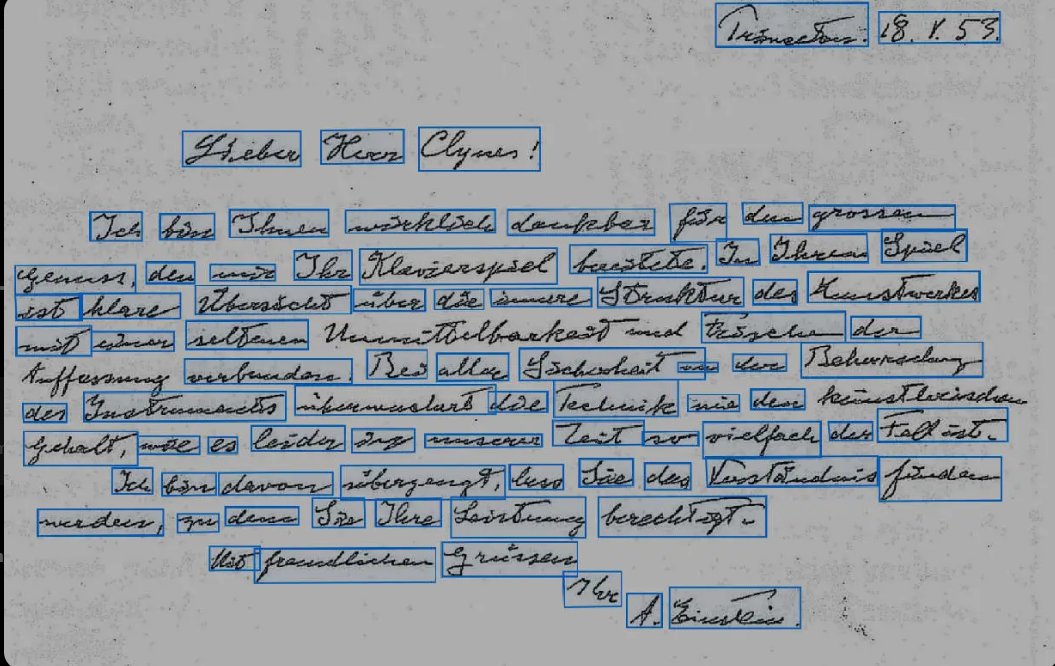 Princeton. 18. V. 53.
Lieber Herr Clynes!
Ich bin Ihnen wirklich dankbar für den grossen
Genuss, den mir Ihr Klavierspiel bereitete. In Ihrem Spiel
ist klare Übersicht über die innere Struktur des Kunstwerkes
mit einer seltenen Unmittelbarkeit und Frische der
Auffassung verbunden. Bei aller Sicherheit in der Beherrschung
des Instruments überwuchert die Technik nie den künstlerischen
Gehalt, wie es leider in unserer Zeit so vielfach der Fall ist.
Ich bin davon überzeugt, dass Sie das Verständnis finden
werden, zu dem Sie Ihre Leistung berechtigt.
Mit freundlichen Grüssen
Ihr
A. Einstein.